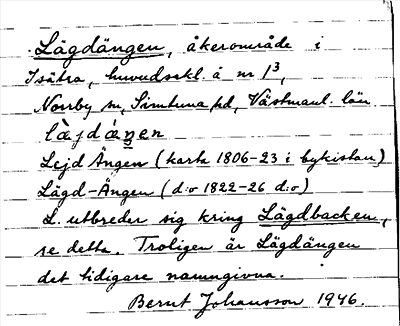 Lägdängen, åkerområde i
Isätra, huvudsakl. å nr 1³,
Norrby sn, Simtuna hd, Västmanl. län.
Lejd Ängen (karta 1806-23 i bykistan)
Lägd-Ängen (d:o 1822-26 d:o)
L. utbreder sig kring Lägdbacken,
se detta. Troligen är Lägdängen
det tidigare namngivna.
Bernt Johansson 1946.